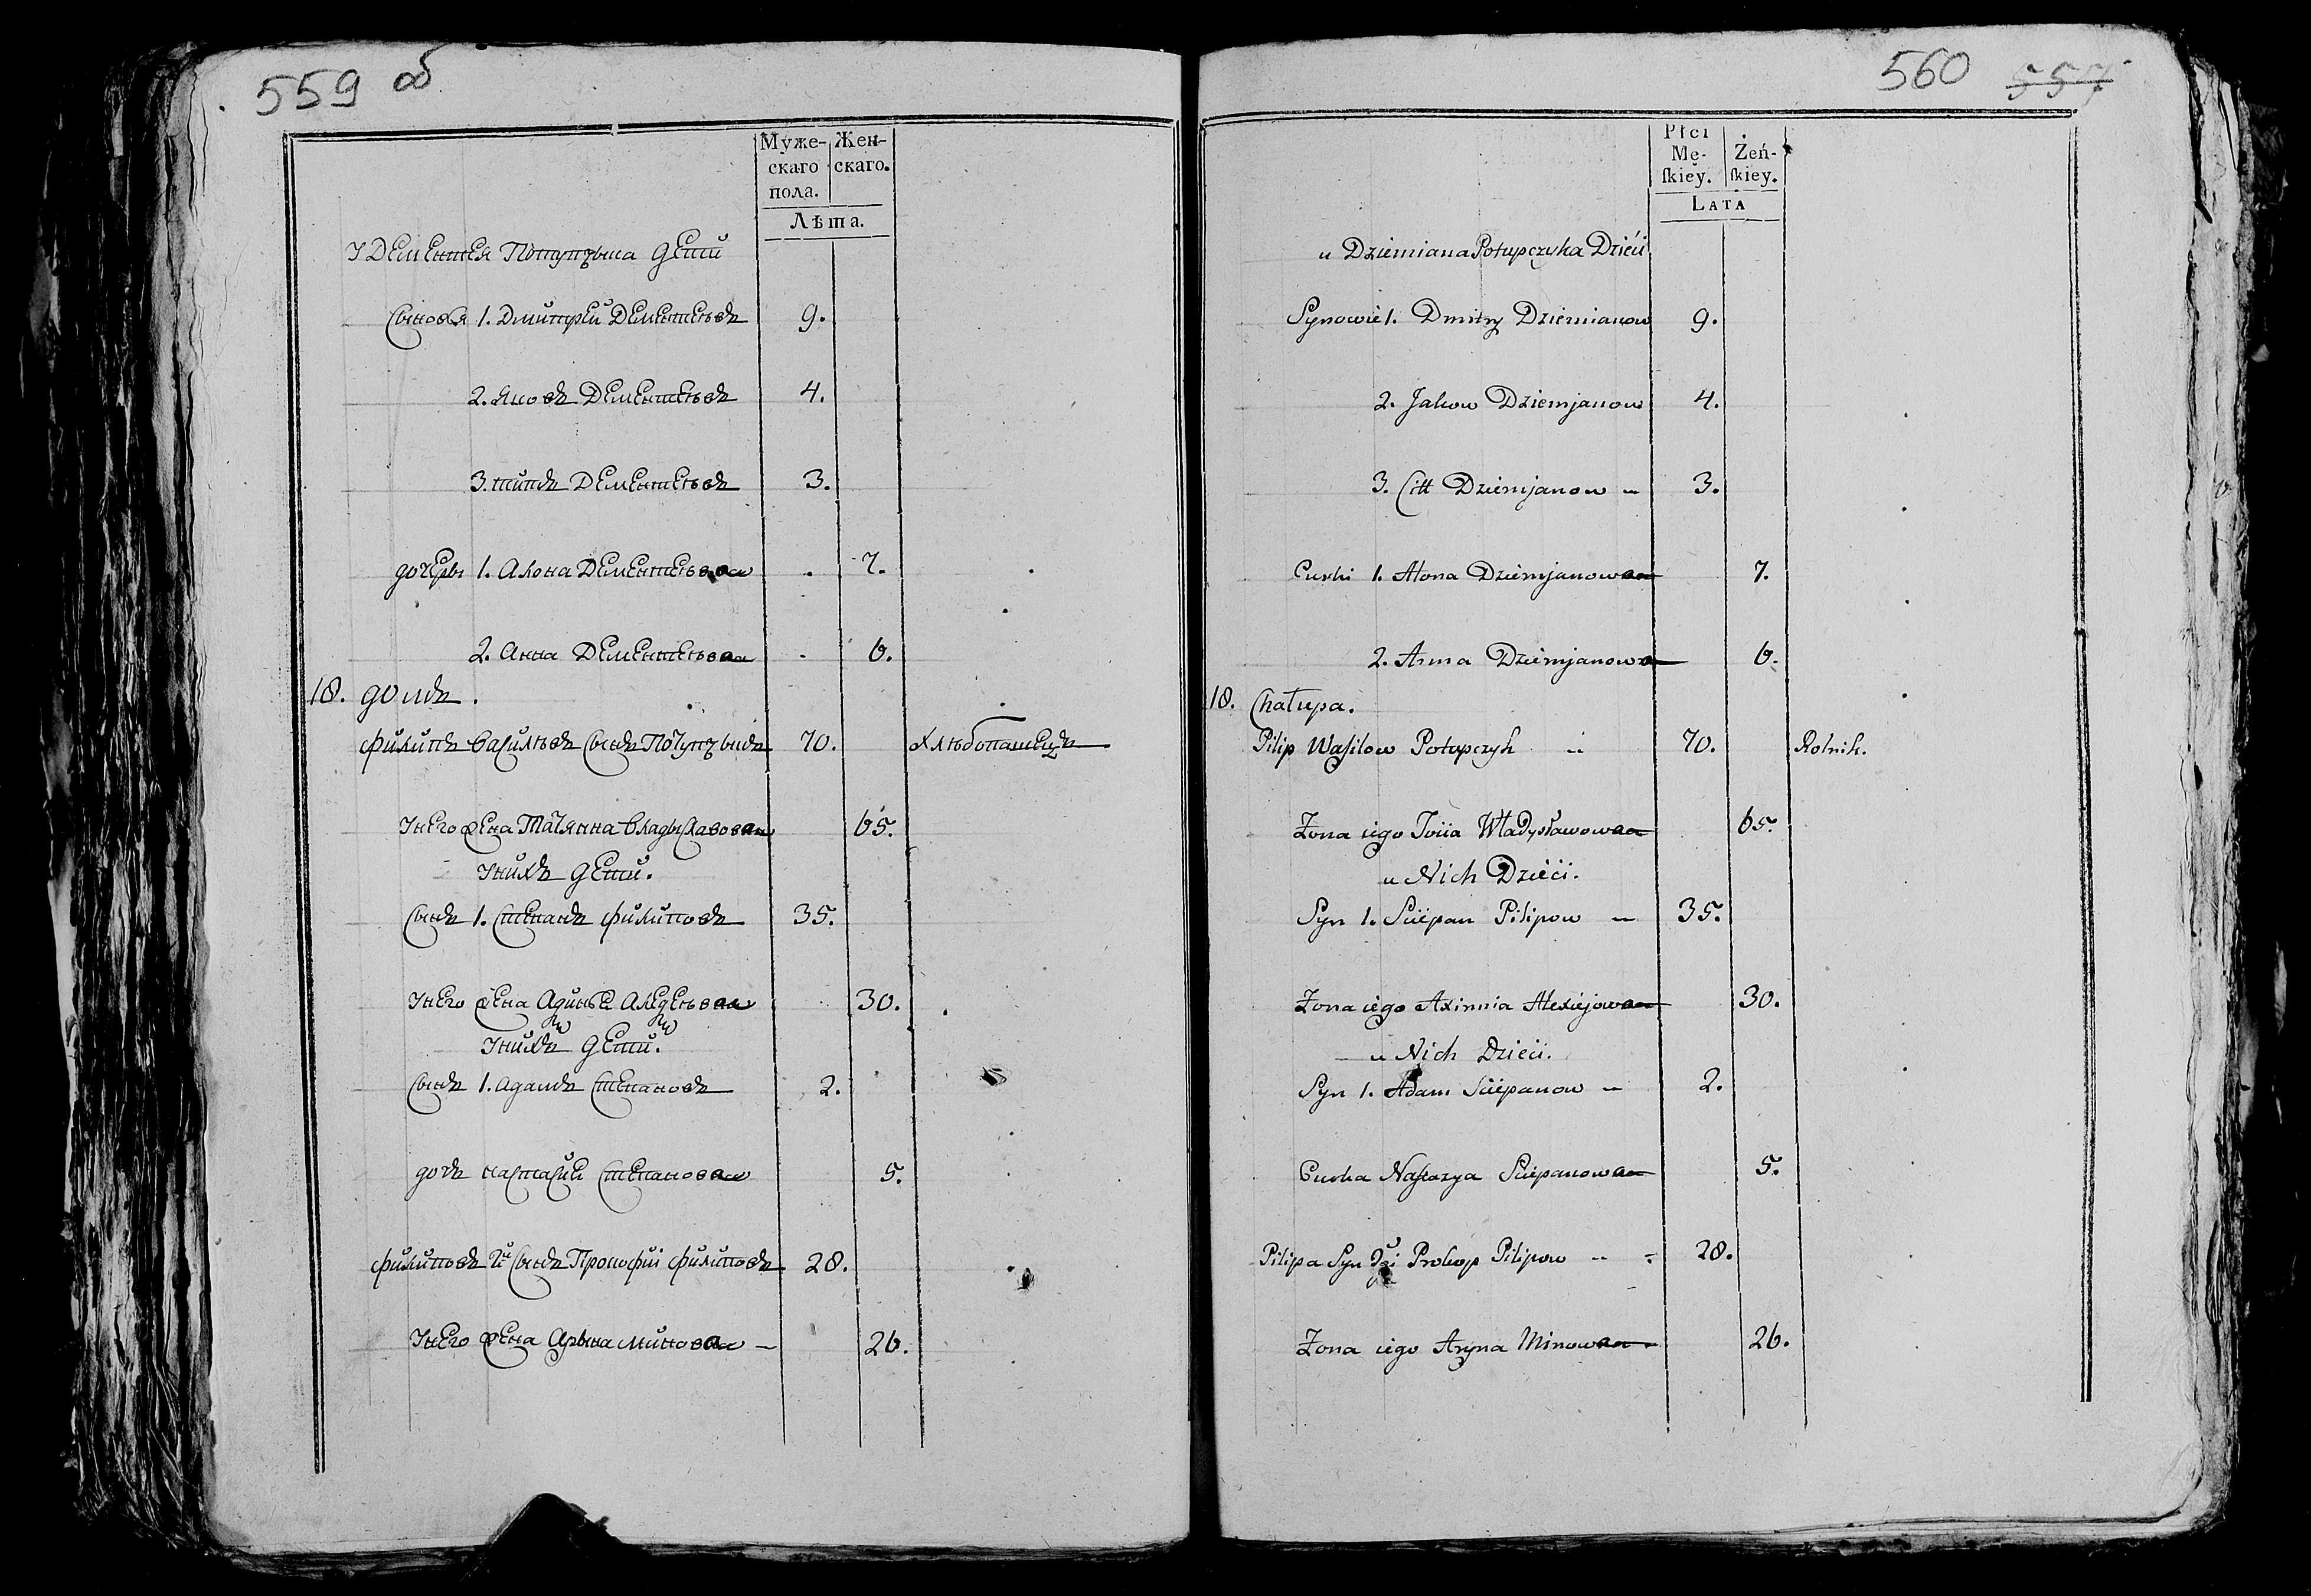 559 об
Муже- Жен-
скаго скаго.
пола.
Лѣта.
У Дементея Потупчыка дети
Сыновя 1. Дмитрей Дементеевъ 9.
2. Яковъ Дементеевъ 4.
3. титъ Дементеевъ 3.
дочеры 1. Алона Дементеева 7.
2. Анна Дементеева 6.
18. домъ.
Филипъ Васильевъ Сынъ Потупчыкъ 70. Хлѣбопашецъ
У него жена Татянна Владыславова 65.
У нихъ дети.
Сынъ 1. Степанъ Филиповъ 35.
У него жена 30.
У нихъ дети.
Сынъ 1. Адамъ Степановъ 2.
дочъ настасия Степанова 5.
Филиповъ 2й Сынъ Прокофій Филиповъ 28.
У него жена Арына Минова 26.
560 557
Płci
Mę- Żeń-
ſkiey. ſkiey.
LATA
u Dziemiana Potupczyka Dzieći
Synowie 1. Dmitry Dziemianow 9.
2. Jakow Dziemjanow 4.
3. Citt Dziemjanow 3.
Curki 1. Alona Dziemjanowa 7.
2. Anna Dziemjanowa 6.
18. Chałupa.
Pilip Waſilow Potupczyk 70. Rolnik.
Żona iego Władysławowa 65.
u Nich Dzieci.
Syn 1. Sciepan Pilipow 35.
Żona iego Axinnia Alexiejowa 30.
u Nich Dzieci.
Syn 1. Adam Sciepanow 2.
Curka Naſtazya Sciepanowa 5.
Pilipa Syn 2gi Prokop Pilipow 28.
Żona iego Aryna Minowa 26.